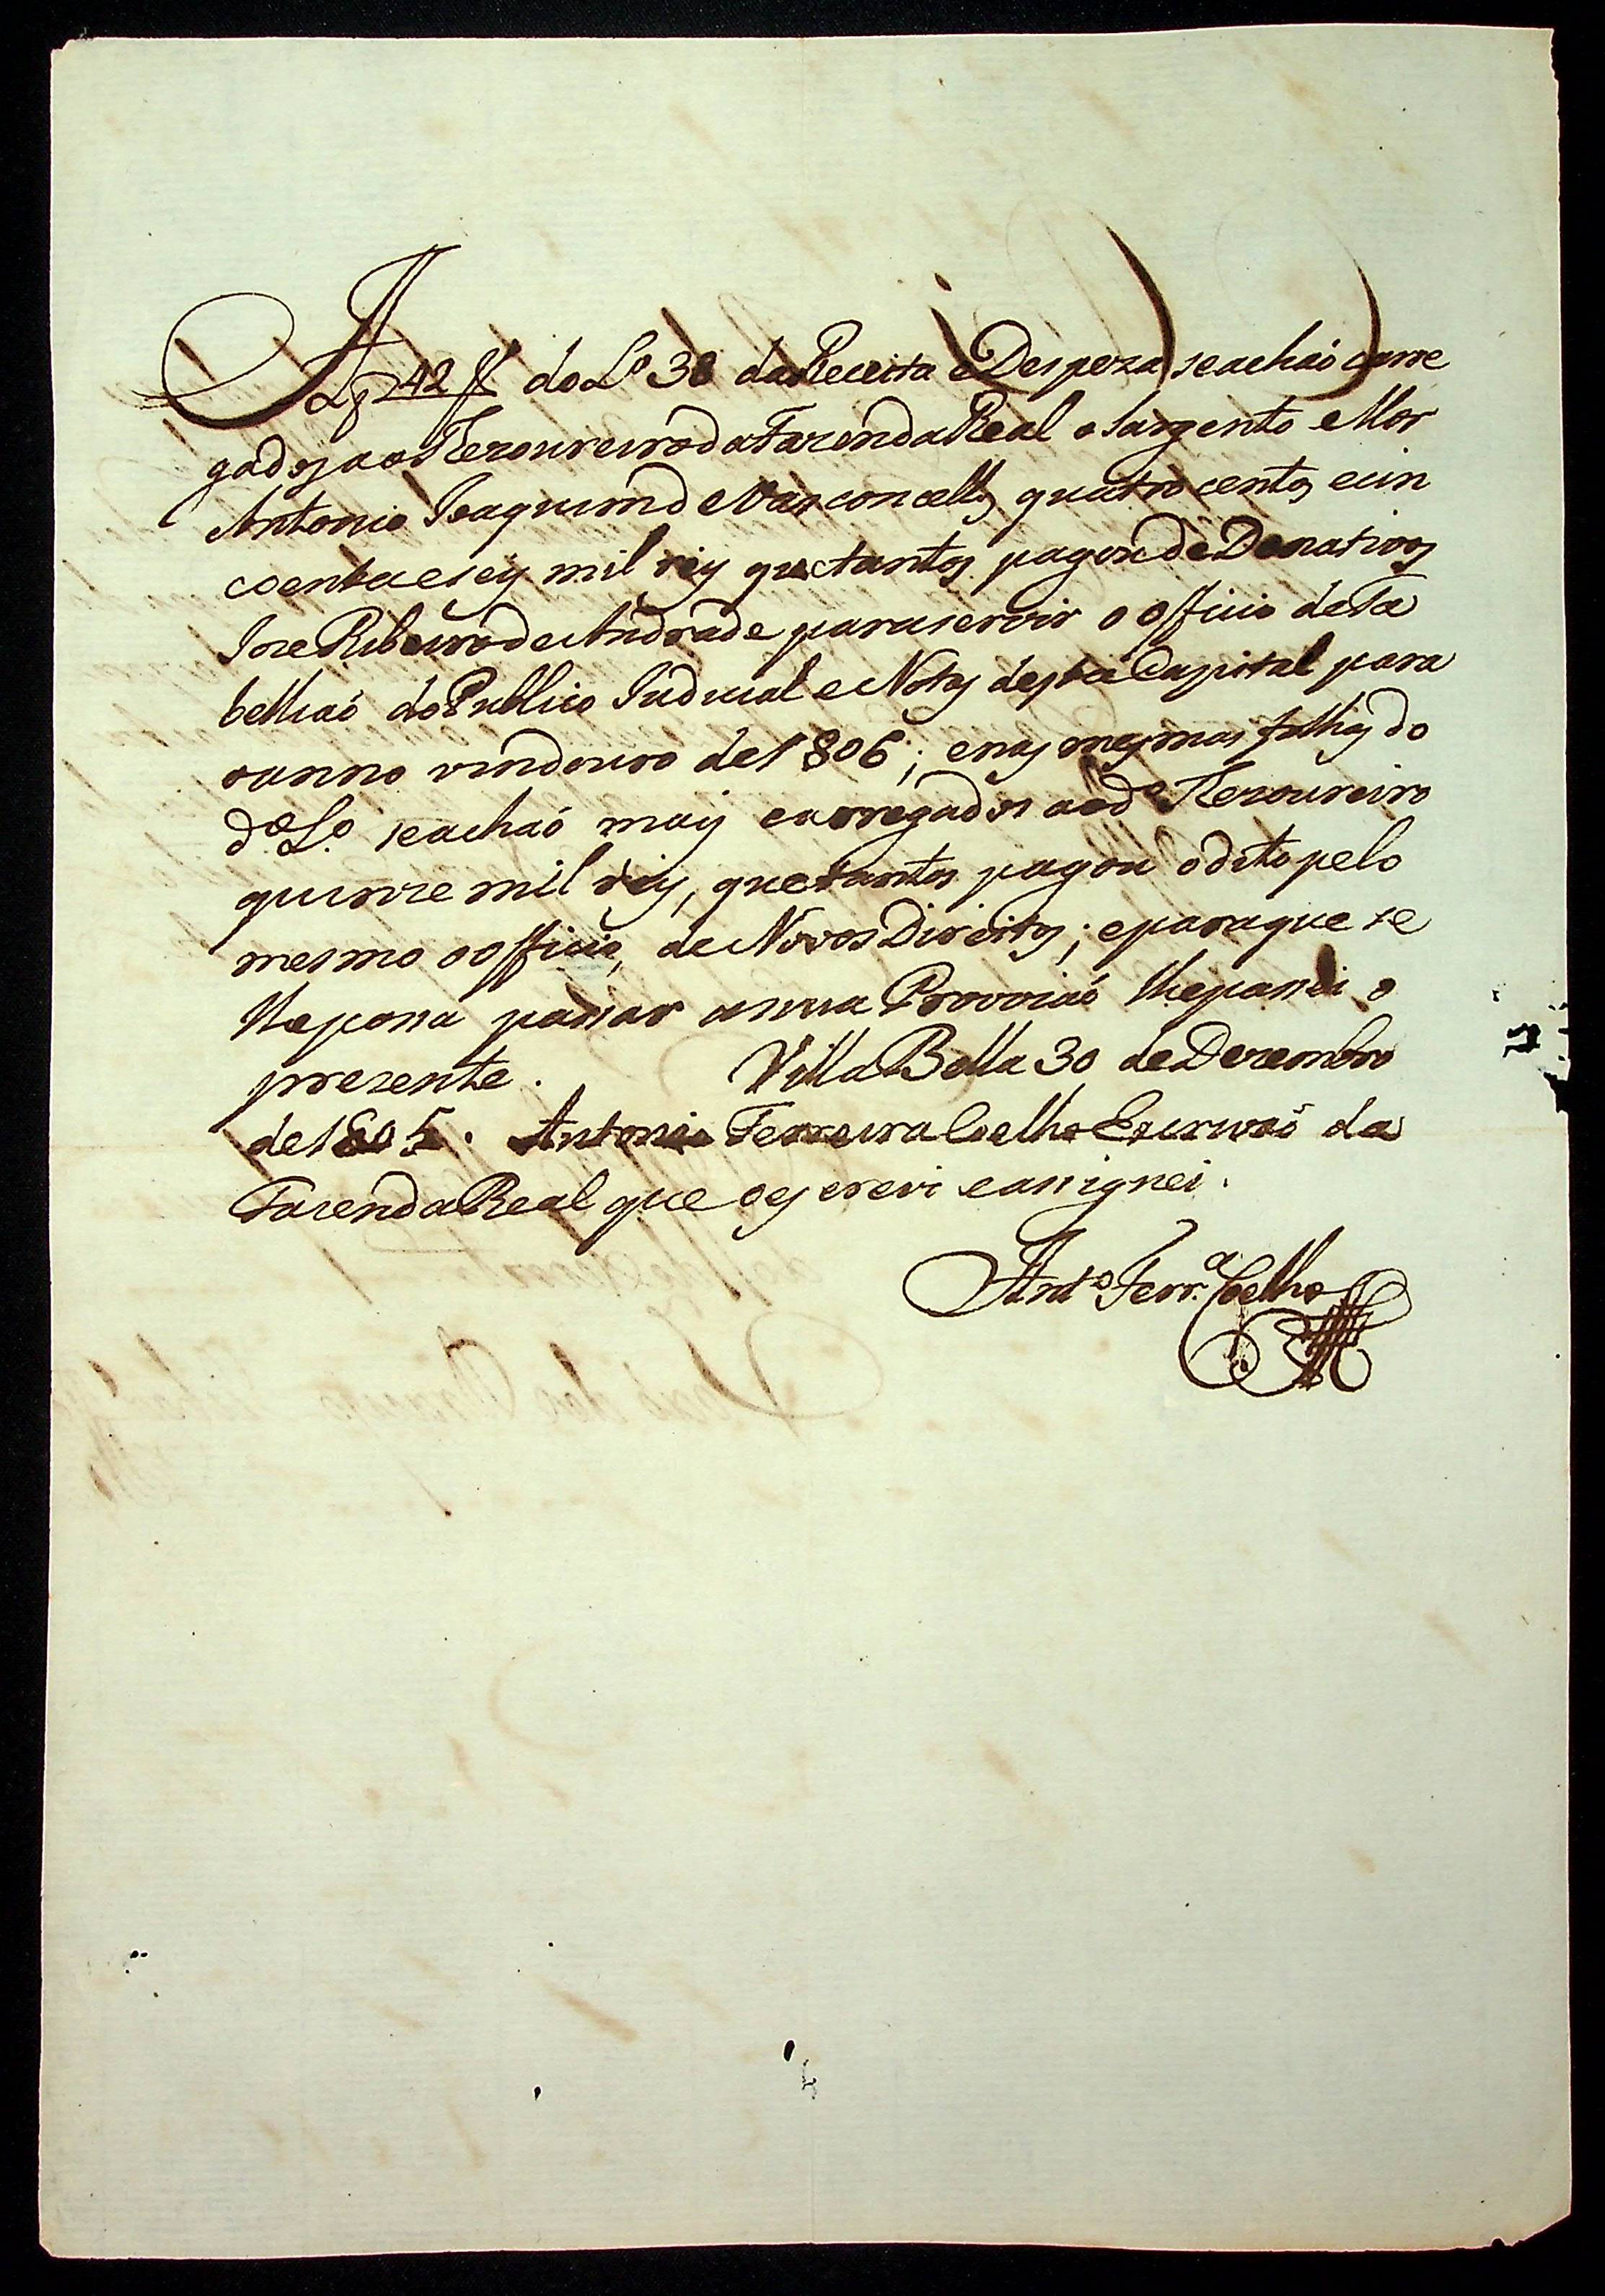 Af 42 V do L.º 38 da Receita e Despeza se achaõ carre
gados ao Thezoureiro da Fazenda Real o Sargento Mor
Antonio Joaquim de Vasconcellos quatro centos e cin
coenta e seis mil reis que tantos pagou de Donativos
Joze Ribeiro de Andrade para servir o officio de Ta
belliaõ do Publico Judicial e Notas desta Capital para
o anno vindouro de 1806; e nas mesmas folhas do
d.º L.º se achaõ mais carregados ao d.º Thezoureiro
quinze mil reis, que tantos pagou o dito pelo
mesmo officio, de Novos Direitos; e para que se
lhe possa passar a sua Provizaõ lhe passei o
prezente. Villa Bella 30 de Dezembro
de 1805. Antonio Ferreira Coelho Escrivaõ da
Fazenda Real que o escrevi e assignei.
Ant.º Ferr.ª Coelho